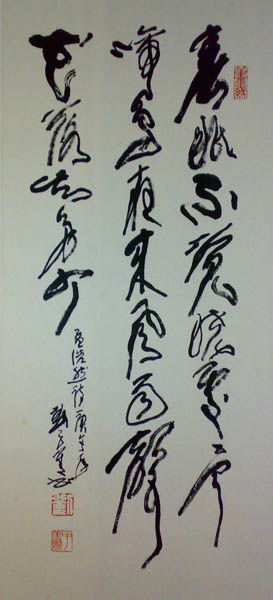 春眠不覺曉處々聞
啼鳥夜來風雨聲
花落知多少
孟浩然詩庚午年